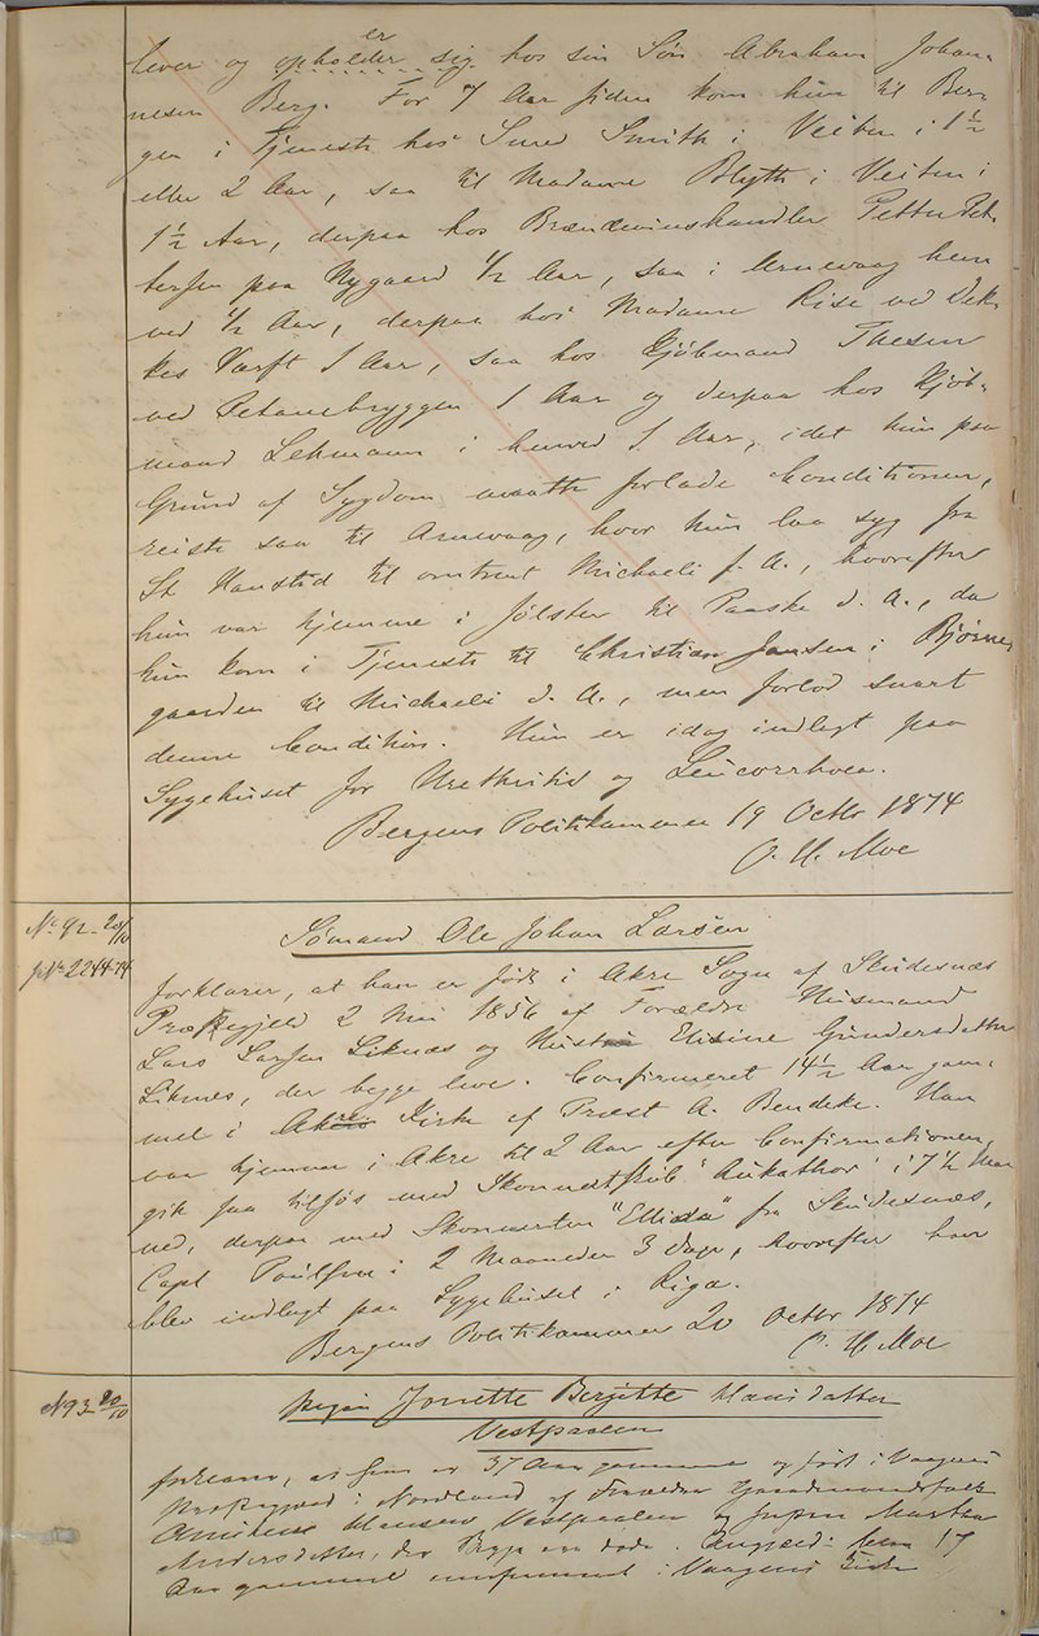 er
lever og opholder sig hos sin Søn Abraham Johan-
nesen Berg. For 7 Aar siden kom hun til Ber-
gen i Tjeneste hos Smed Smith i Veiten i 1½
eller 2 Aar, saa til Madame Blytt i Veiten i
1½ Aar, derpaa hos Brændeviinshandler Petter Pet-
tersen paa Nygaard ½ Aar, saa i Arnevaag hen
ved ½ Aar, derpaa hos Madame Rise ved Dek-
kes Værft 1 Aar, saa hos Kjøbmand Thesen
ved Petanebryggen 1 Aar og derpaa hos Kjøb-
mand Lehmann i henved 1 Aar, idet hun paa
Grund af Sygdom maatte forlade Conditionen,
reiste saa til Arnevaag, hvor hun laa syg fra
St Hanstid til omtrent Michaeli f. A., hvorefter
hun var hjemme i Jølster til Paaske d. A., da
hun kom i Tjeneste til Christian Jansen i Bjørne-
gaarden til Michaeli d. A., men forlod snart
denne Condition. Hun er idag indlagt paa
Sygehuset for Urethritis og Leucorrhoea.
Bergens Politikammer 19 Octbr 1874
O. H. Moe
No 92 - 20/10
2244-74
Sømand Ole Johan Larsen
forklarer, at han er født i Akre Sogn af Skudesnæs
Præstegjeld 2 Mai 1856 af Forældre Husmand
Lars Larsen Liknæs og Hustru Elisine Gundersdatter
Liknæs, der begge leve. Confirmeret 14½ Aar gam-
mel i Akre Kirke af Præst A. Bendeke. Han
var hjemme i Akre til 2 Aar efter Confirmationen,
gik saa tilsøs med Skonnertskib "Aukathor" i 7½ Maa-
ned, derpaa med Skonnerten "Ellida" fra Skudesnæs,
Capt Poulsen i 2 Maaneder 3 Dage, hvorefter han
blev indlagt paa Sygehuset i Riga.
Bergens Politikammer 20 Octbr 1874
O. H. Moe
N 93 20/10
Pigen Jonette Bergitte Hansdatter
Vestpaalen
forklarer, at hun er 37 Aar gammel og født i Vaagens
Præstegjeld i Nordland af Forældre Gaardmandsfolk
Hansen Vestpaalen og Martha
Andersdatter, der Begge ere døde. 17
Aar gammel confirmeret i Vaagens Kirke